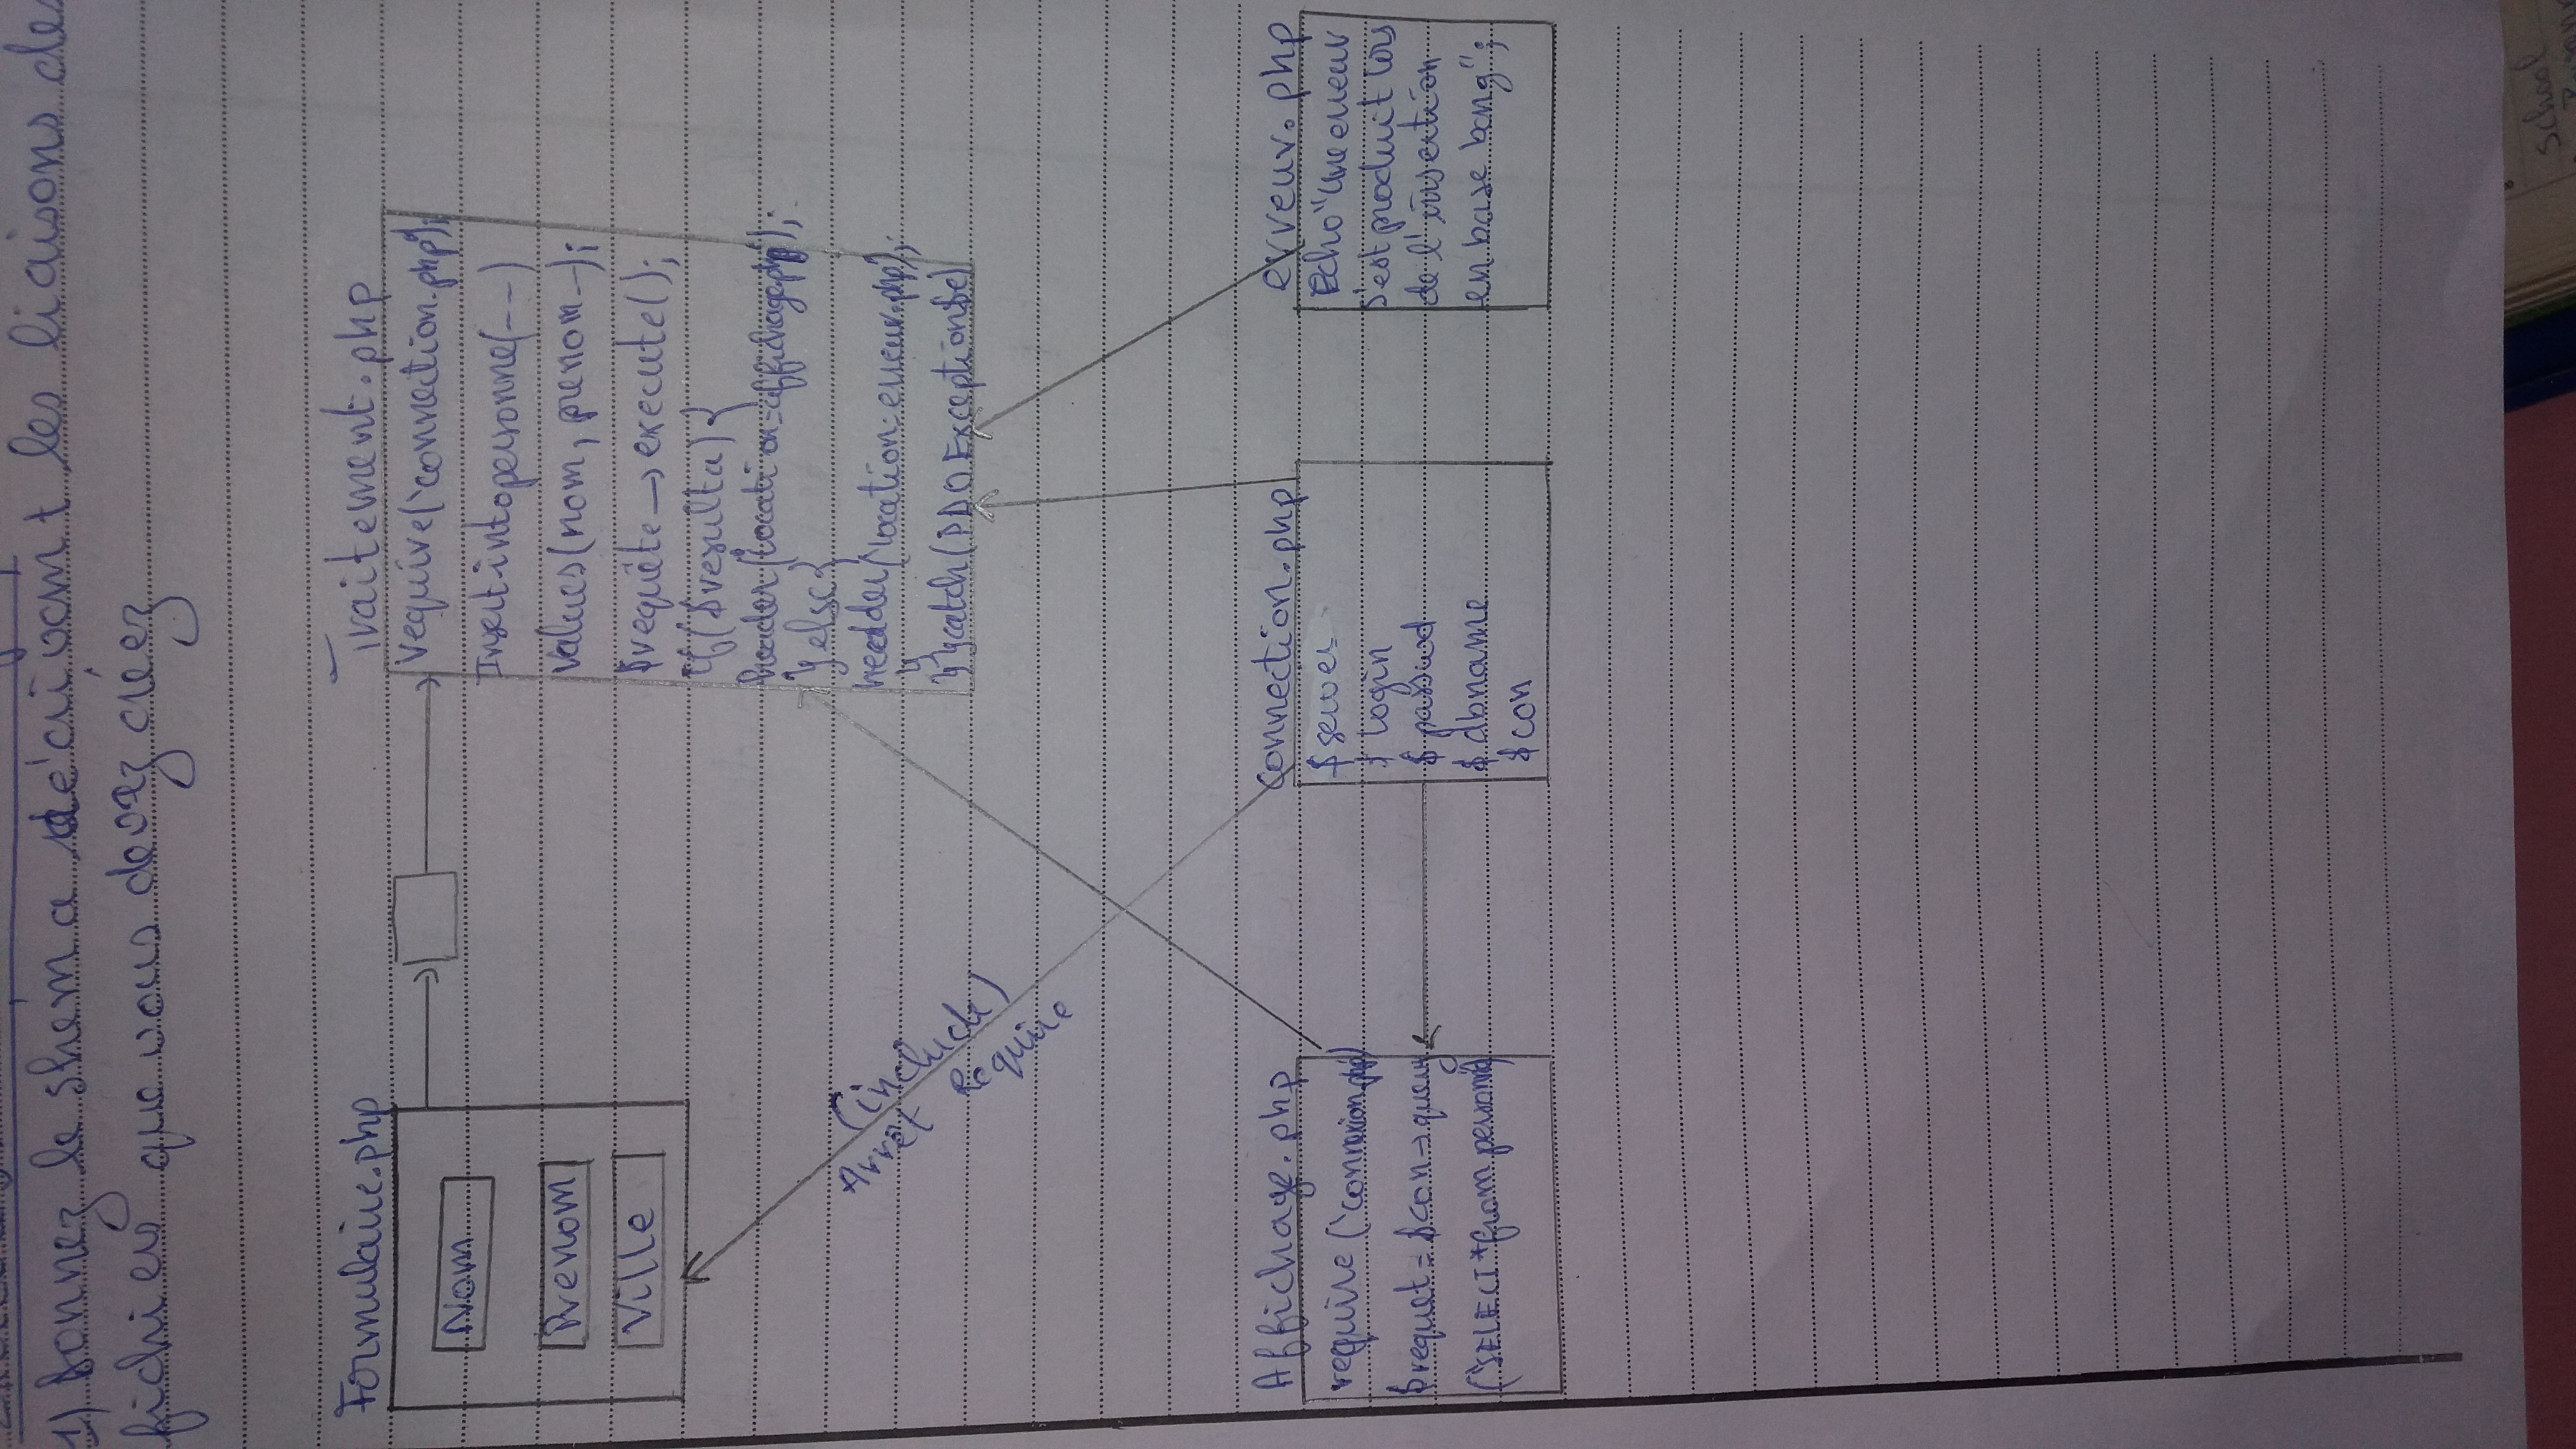 1) Donnez le shéma décrivant les liaisons des
fichiers que vous devez créez
Formulaire.php
Nom
Prenom
Ville
Traitement.php
require('connection.php');
Insert into personne(--)
values(nom, prenom-);
$requête->execute();
if($resulta){
header(location=affichage.php');
}else{
header('location=erreur.php');
}
}}catch(PDOException$e)
(include)
Arret Require
Affichage.php
require('connexion.php')
$requet=$con->query
("SELECT*from personne)
connection.php
$server
$login
$passwd
$dbname
$con
erreur.php
Echo"une erreur
s'est produit lors
de l'insertion
en base
School